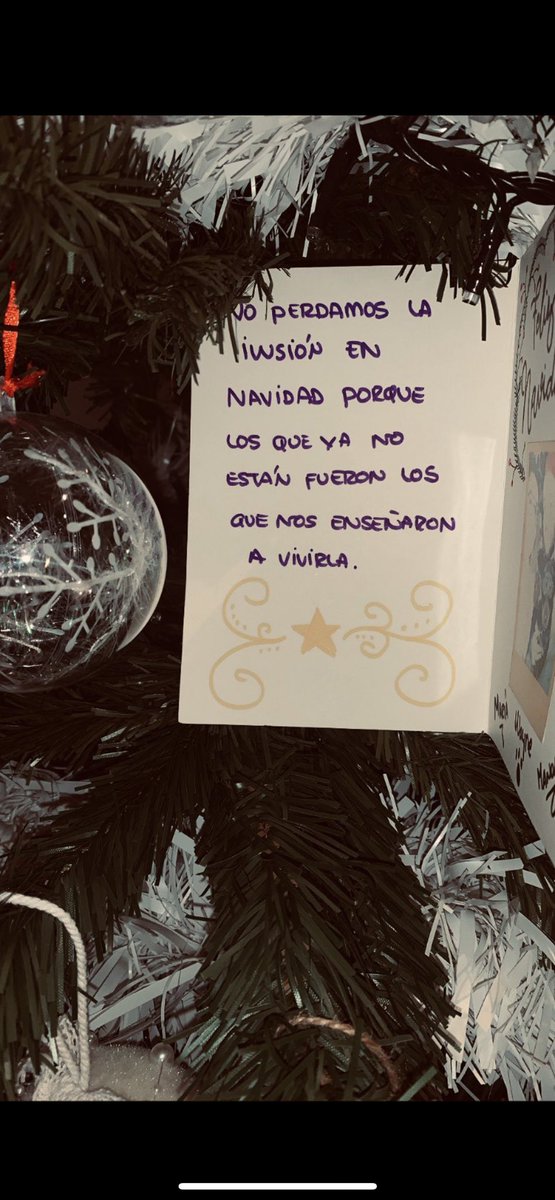 NO PERDAMOS LA
ILUSIÓN EN
NAVIDAD PORQUE
LOS QUE YA NO
ESTÁN FUERON LOS
QUE NOS ENSEÑARON
A VIVIRLA.
Feliz
Navidad